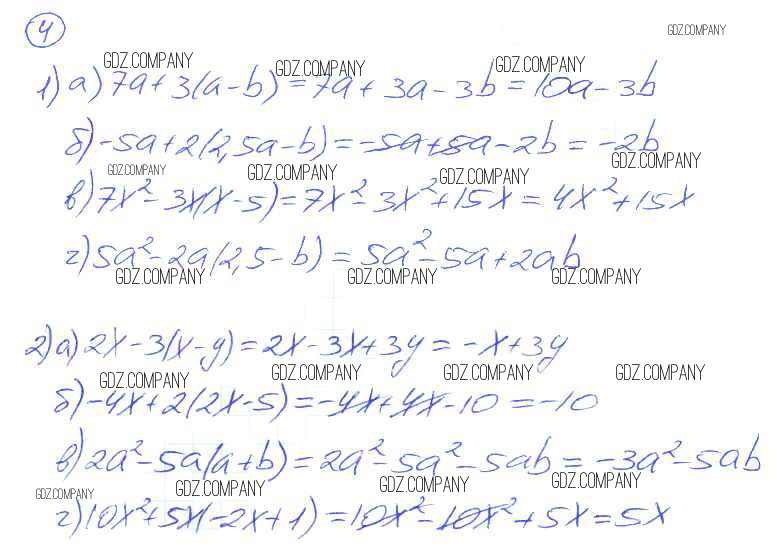 4
GDZ.COMPANY
GDZ.COMPANY GDZ.COMPANY GDZ.COMPANY
1) а) 7a + 3(a - b) = 7a + 3a - 3b = 10a - 3b
б) -5a + 2(2,5a - b) = -5a + 5a - 2b = -2b
GDZ.COMPANY GDZ.COMPANY GDZ.COMPANY GDZ.COMPANY
в) 7x² - 3x(x - 5) = 7x² - 3x² + 15x = 4x² + 15x
г) 5a² - 2a(2,5 - b) = 5a² - 5a + 2ab
GDZ.COMPANY GDZ.COMPANY GDZ.COMPANY
2) а) 2x - 3(x - y) = 2x - 3x + 3y = -x + 3y
GDZ.COMPANY GDZ.COMPANY GDZ.COMPANY GDZ.COMPANY
б) -4x + 2(2x - 5) = -4x + 4x - 10 = -10
в) 2a² - 5a(a + b) = 2a² - 5a² - 5ab = -3a² - 5ab
GDZ.COMPANY GDZ.COMPANY GDZ.COMPANY GDZ.COMPANY
г) 10x² + 5x(-2x + 1) = 10x² - 10x² + 5x = 5x